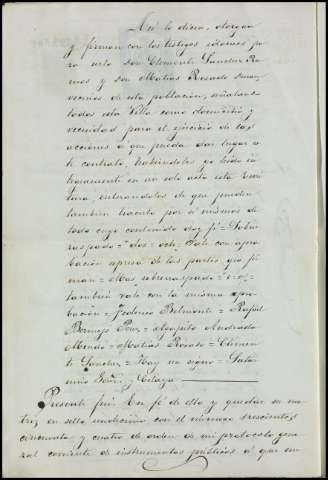 Así lo dicen, otorgan
y firman con los testigos idóneos pa
ra esto Don Clemente Sanchez Ra
mos y Don Matías Rosado
vecinos de esta población, señalando
todos esta Villa como domicilio y
vecindad para el ejercicio de las
acciones a que pueda dar lugar es
te contrato, habiéndoles yo leído ín
tegramente en un solo acto esta escri
tura enterandoles de que pueden
también hacerlo por sí mismos de
todo cuyo contenido doy fé = Sobre
raspado = dos = och = Vale con apro
bación expresa de las partes que fir
man = Mas sobrerraspado =
también vale con la misma apro
bación = Federico Belmonte = Rafael
Bermejo = Andrada
= Matías Rosado = Clemen
te Sanchez = Hay un signo = Satur
nino
Presente fuí. En fé de ello y quedar su ma
triz en sello undécimo con el número trescientos
cincuenta y cuatro de orden de mi protocolo gene
ral corriente de instrumentos públicos á que me